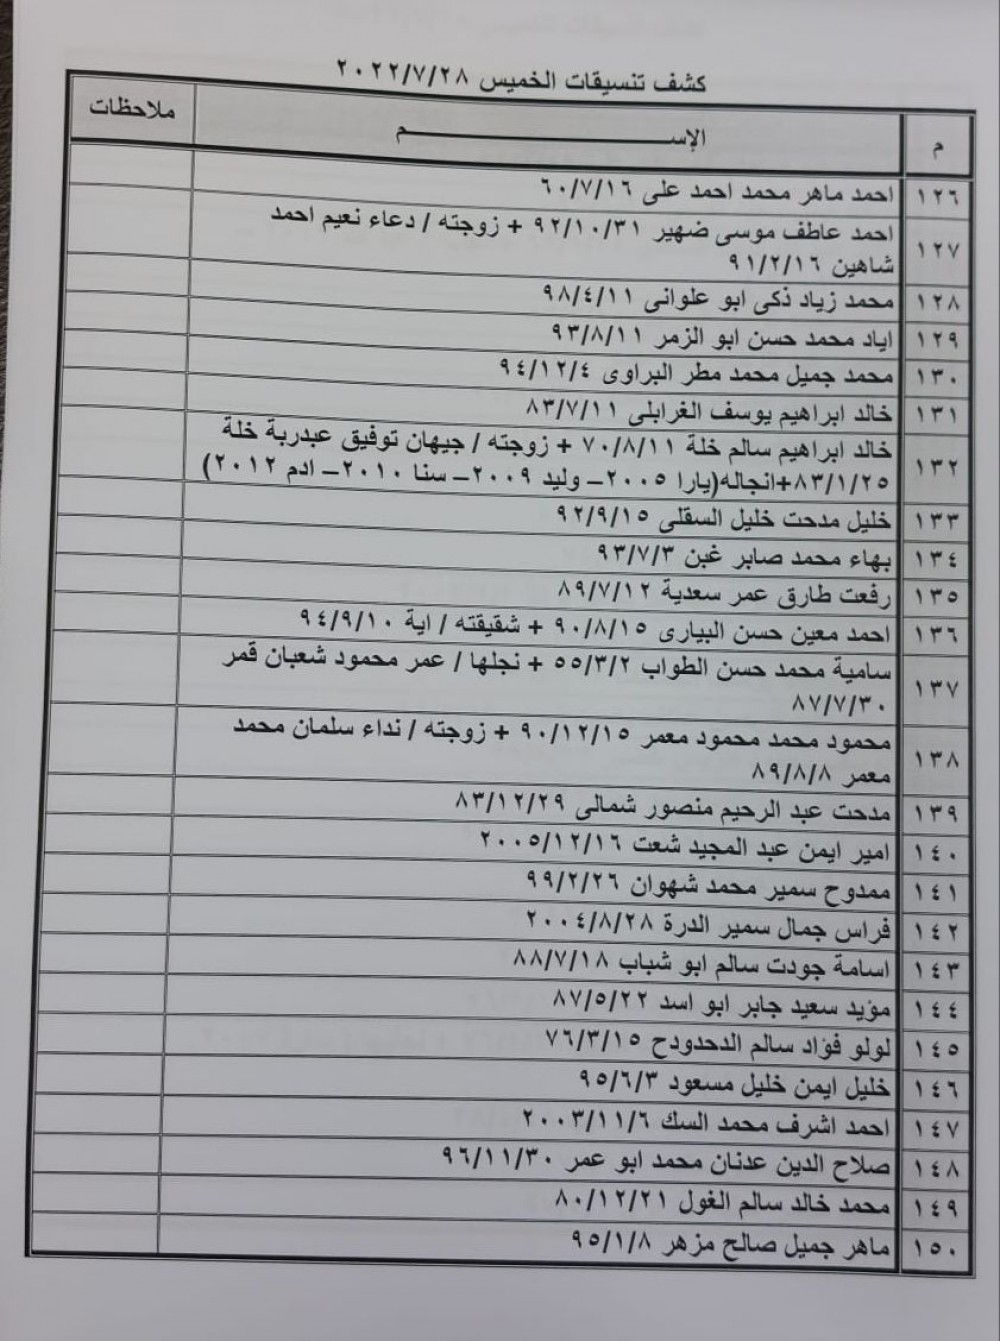 كشف تنسيقات الخميس ٢٠٢٢/٧/٢٨
م الإســـــــم ملاحظات
١٢٦ احمد ماهر محمد احمد على ٦٠/٧/١٦
١٢٧ احمد عاطف موسى ضهير ٩٢/١٠/٣١ + زوجته / دعاء نعيم احمد
شاهين ٩١/٢/١٦
١٢٨ محمد زياد ذكى ابو علوانى ٩٨/٤/١١
١٢٩ اياد محمد حسن ابو الزمر ٩٣/٨/١١
١٣٠ محمد جميل محمد مطر البراوى ٩٤/١٢/٤
١٣١ خالد ابراهيم يوسف الغرابلى ٨٣/٧/١١
١٣٢ خالد ابراهيم سالم خلة ٧٠/٨/١١ + زوجته / جيهان توفيق عبدربة خلة
٨٣/١/٢٥+انجاله(يارا ٢٠٠٥– وليد ٢٠٠٩– سنا ٢٠١٠– ادم ٢٠١٢)
١٣٣ خليل مدحت خليل السقلى ٩٢/٩/١٥
١٣٤ بهاء محمد صابر غبن ٩٣/٧/٣
١٣٥ رفعت طارق عمر سعدية ٨٩/٧/١٢
١٣٦ احمد معين حسن البيارى ٩٠/٨/١٥ + شقيقته / اية ٩٤/٩/١٠
١٣٧ سامية محمد حسن الطواب ٥٥/٣/٢ + نجلها / عمر محمود شعبان قمر
٨٧/٧/٣٠
١٣٨ محمود محمد محمود معمر ٩٠/١٢/١٥ + زوجته / نداء سلمان محمد
معمر ٨٩/٨/٨
١٣٩ مدحت عبد الرحيم منصور شمالى ٨٣/١٢/٢٩
١٤٠ امير ايمن عبد المجيد شعت ٢٠٠٥/١٢/١٦
١٤١ ممدوح سمير محمد شهوان ٩٩/٢/٢٦
١٤٢ فراس جمال سمير الدرة ٢٠٠٤/٨/٢٨
١٤٣ اسامة جودت سالم ابو شباب ٨٨/٧/١٨
١٤٤ مؤيد سعيد جابر ابو اسد ٨٧/٥/٢٢
١٤٥ لولو فؤاد سالم الدحدودح ٧٦/٣/١٥
١٤٦ خليل ايمن خليل مسعود ٩٥/٦/٣
١٤٧ احمد اشرف محمد السك ٢٠٠٣/١١/٦
١٤٨ صلاح الدين عدنان محمد ابو عمر ٩٦/١١/٣٠
١٤٩ محمد خالد سالم الغول ٨٠/١٢/٢١
١٥٠ ماهر جميل صالح مزهر ٩٥/١/٨